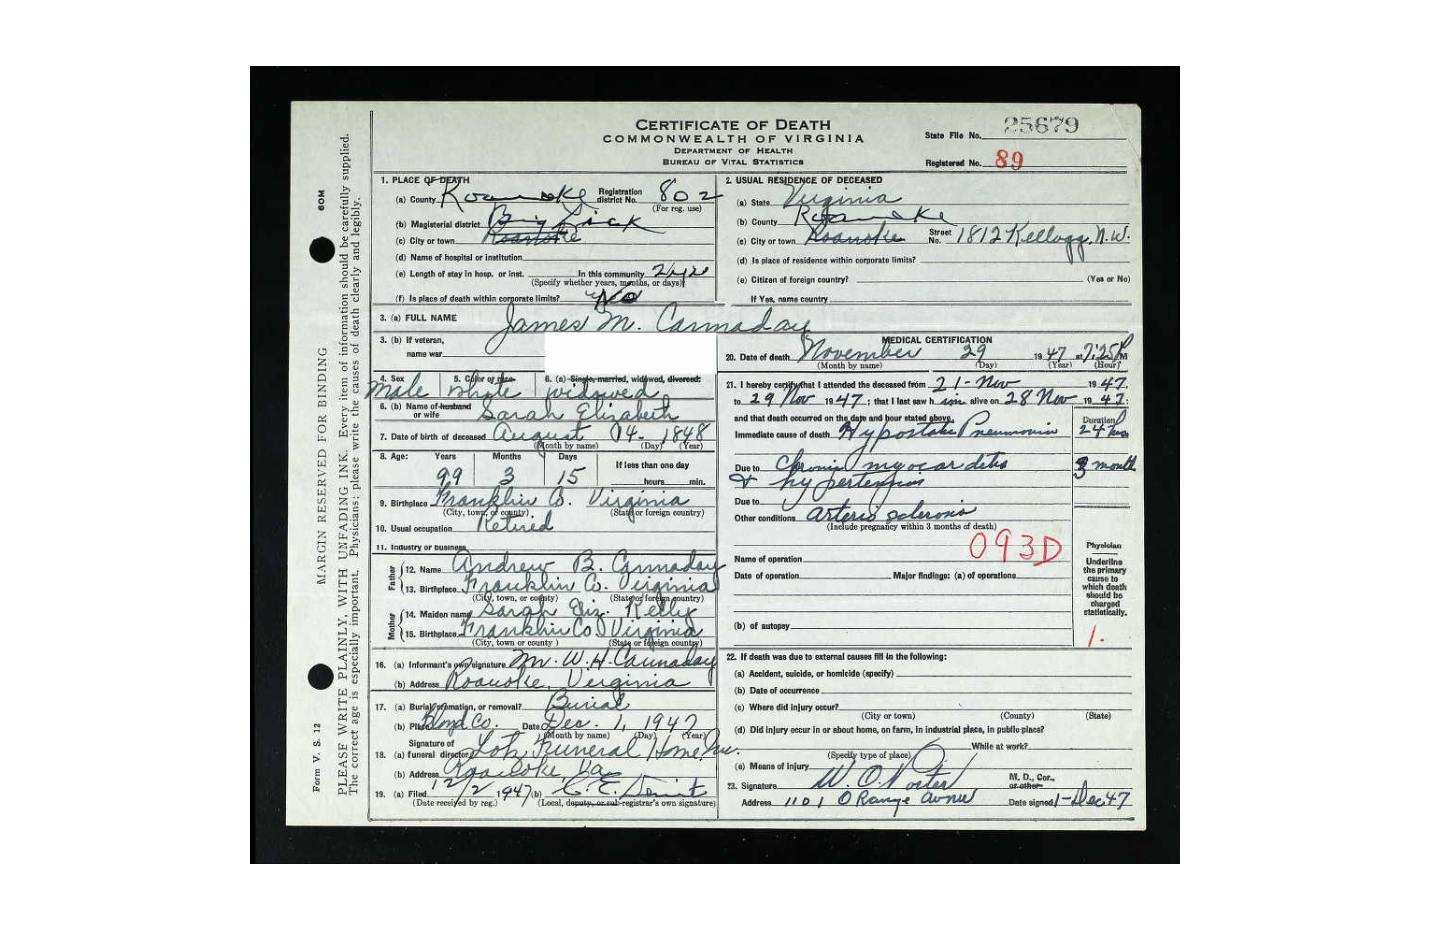 CERTIFICATE OF DEATH
COMMONWEALTH OF VIRGINIA
DEPARTMENT OF HEALTH
BUREAU OF VITAL STATISTICS
State File No. 25679
Registered No. 89
Form V. S. 12
60M
MARGIN RESERVED FOR BINDING
PLEASE WRITE PLAINLY, WITH UNFADING INK. Every item of information should be carefully supplied.
The correct age is especially important. Physicians: please write the causes of death clearly and legibly.
1. PLACE OF DEATH
(a) County Roanoke Registration district No. 802
(For reg. use)
(b) Magisterial district Big Lick
(c) City or town Roanoke
(d) Name of hospital or institution
(e) Length of stay in hosp. or inst. In this community
(Specify whether years, months, or days)
(f) Is place of death within corporate limits? No
2. USUAL RESIDENCE OF DECEASED
(a) State Virginia
(b) County Roanoke
(c) City or town Roanoke Street No. 1812 Kellogg, N.W.
(d) Is place of residence within corporate limits?
(e) Citizen of foreign country? (Yes or No)
If Yes, name country
3. (a) FULL NAME James M. Cannaday
3. (b) If veteran,
name war
4. Sex 5. Color or race 6. (a) Single, married, widowed, divorced:
Male white widowed
6. (b) Name of husband
or wife Sarah Elizabeth
7. Date of birth of deceased August 14- 1848
(Month by name) (Day) (Year)
8. Age: Years Months Days If less than one day
99 3 15 hours min.
9. Birthplace Franklin Co. Virginia
(City, town, or county) (State or foreign country)
10. Usual occupation Retired
11. Industry or business
Father
12. Name Andrew B. Cannaday
13. Birthplace Franklin Co. Virginia
(City, town, or county) (State or foreign country)
Mother
14. Maiden name Sarah Eliz. Kelly
15. Birthplace Franklin Co. Virginia
(City, town or county) (State or foreign country)
16. (a) Informant's own signature Mr. W. H. Cannaday
(b) Address Roanoke, Virginia
17. (a) Burial, cremation, or removal? Burial
(b) Place Floyd Co. Date Dec. 1, 1947
(Month by name) (Day) (Year)
Signature of
18. (a) funeral director Lotz Funeral Home Inc.
(b) Address Roanoke, Va
19. (a) Filed 12/2 1947 (b) C. E.
(Date received by reg.) (Local, deputy, or sub-registrar's own signature)
MEDICAL CERTIFICATION
20. Date of death November 29 1947 at 7:25 P M
(Month by name) (Day) (Year) (Hour)
21. I hereby certify that I attended the deceased from 21-Nov 1947
to 29 Nov 1947; that I last saw him alive on 28 Nov 1947;
and that death occurred on the date and hour stated above. Duration
Immediate cause of death Hypostatic Pneumonia 24 hrs
Due to Chronic myocarditis 3 month
& hypertension
Due to
Other conditions Arterio sclerosis
(Include pregnancy within 3 months of death)
093D
Name of operation
Date of operation Major findings: (a) of operations
(b) of autopsy
Physician
Underline
the primary
cause to
which death
should be
charged
statistically.
1.
22. If death was due to external causes fill in the following:
(a) Accident, suicide, or homicide (specify)
(b) Date of occurrence
(c) Where did injury occur?
(City or town) (County) (State)
(d) Did injury occur in or about home, on farm, in industrial place, in public place?
While at work?
(Specify type of place)
(e) Means of injury
23. Signature W. O. Porter M. D., Cor., or other
Address 1101 Orange Avenue Date signed 1-Dec 47